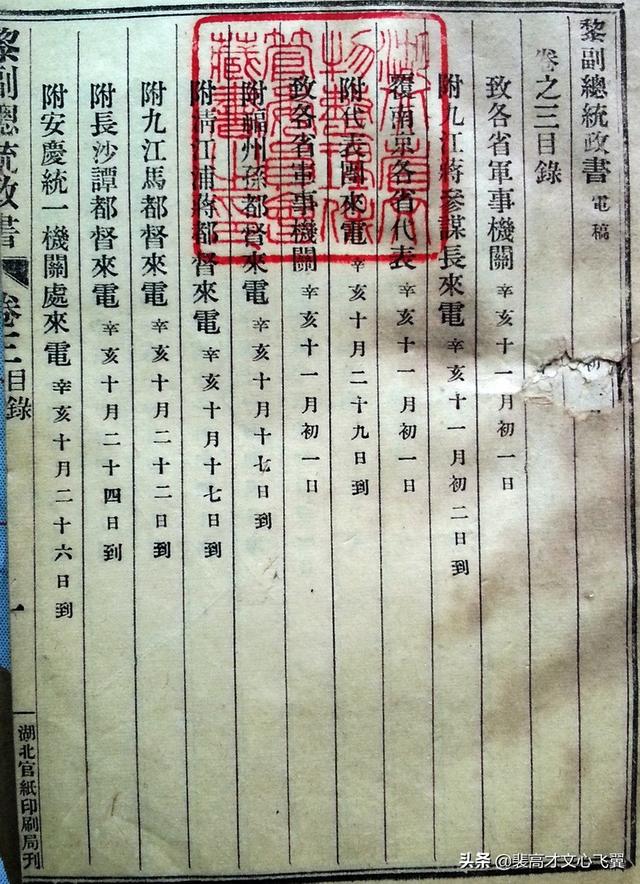 黎副總統政書 電稿
卷之三目錄
致各省軍事機關 辛亥十一月初一日
附九江蔣參謀長來電 辛亥十一月初二日到
覆南京各省代表 辛亥十一月初一日
附代表團來電 辛亥十月二十九日到
致各省軍事機關 辛亥十一月初一日
附福州孫都督來電 辛亥十月十七日到
附清江浦蔣都督來電 辛亥十月十七日到
附九江馬都督來電 辛亥十月二十二日到
附長沙譚都督來電 辛亥十月二十四日到
附安慶統一機關處來電 辛亥十月二十六日到
黎副總統政書 卷三目錄
一
湖北官紙印刷局刊
头条 @裴高才文心飞翼